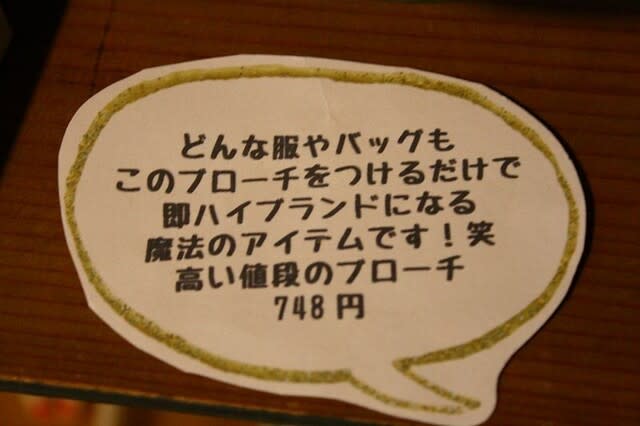 どんな服やバッグも
このブローチをつけるだけで
即ハイブランドになる
魔法のアイテムです！笑
高い値段のブローチ
748円